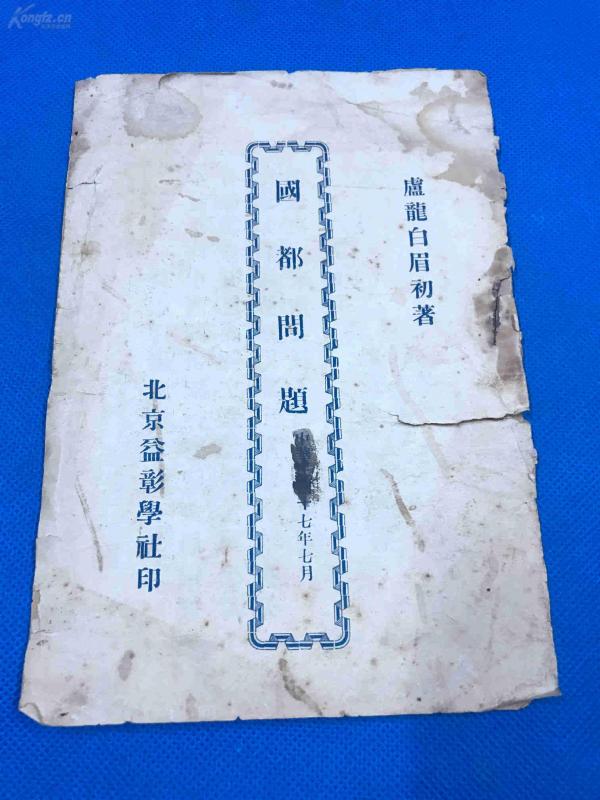 Kongfz.cn
盧龍白眉初著
國都問題
中華民國十七年七月
北京益彰學社印